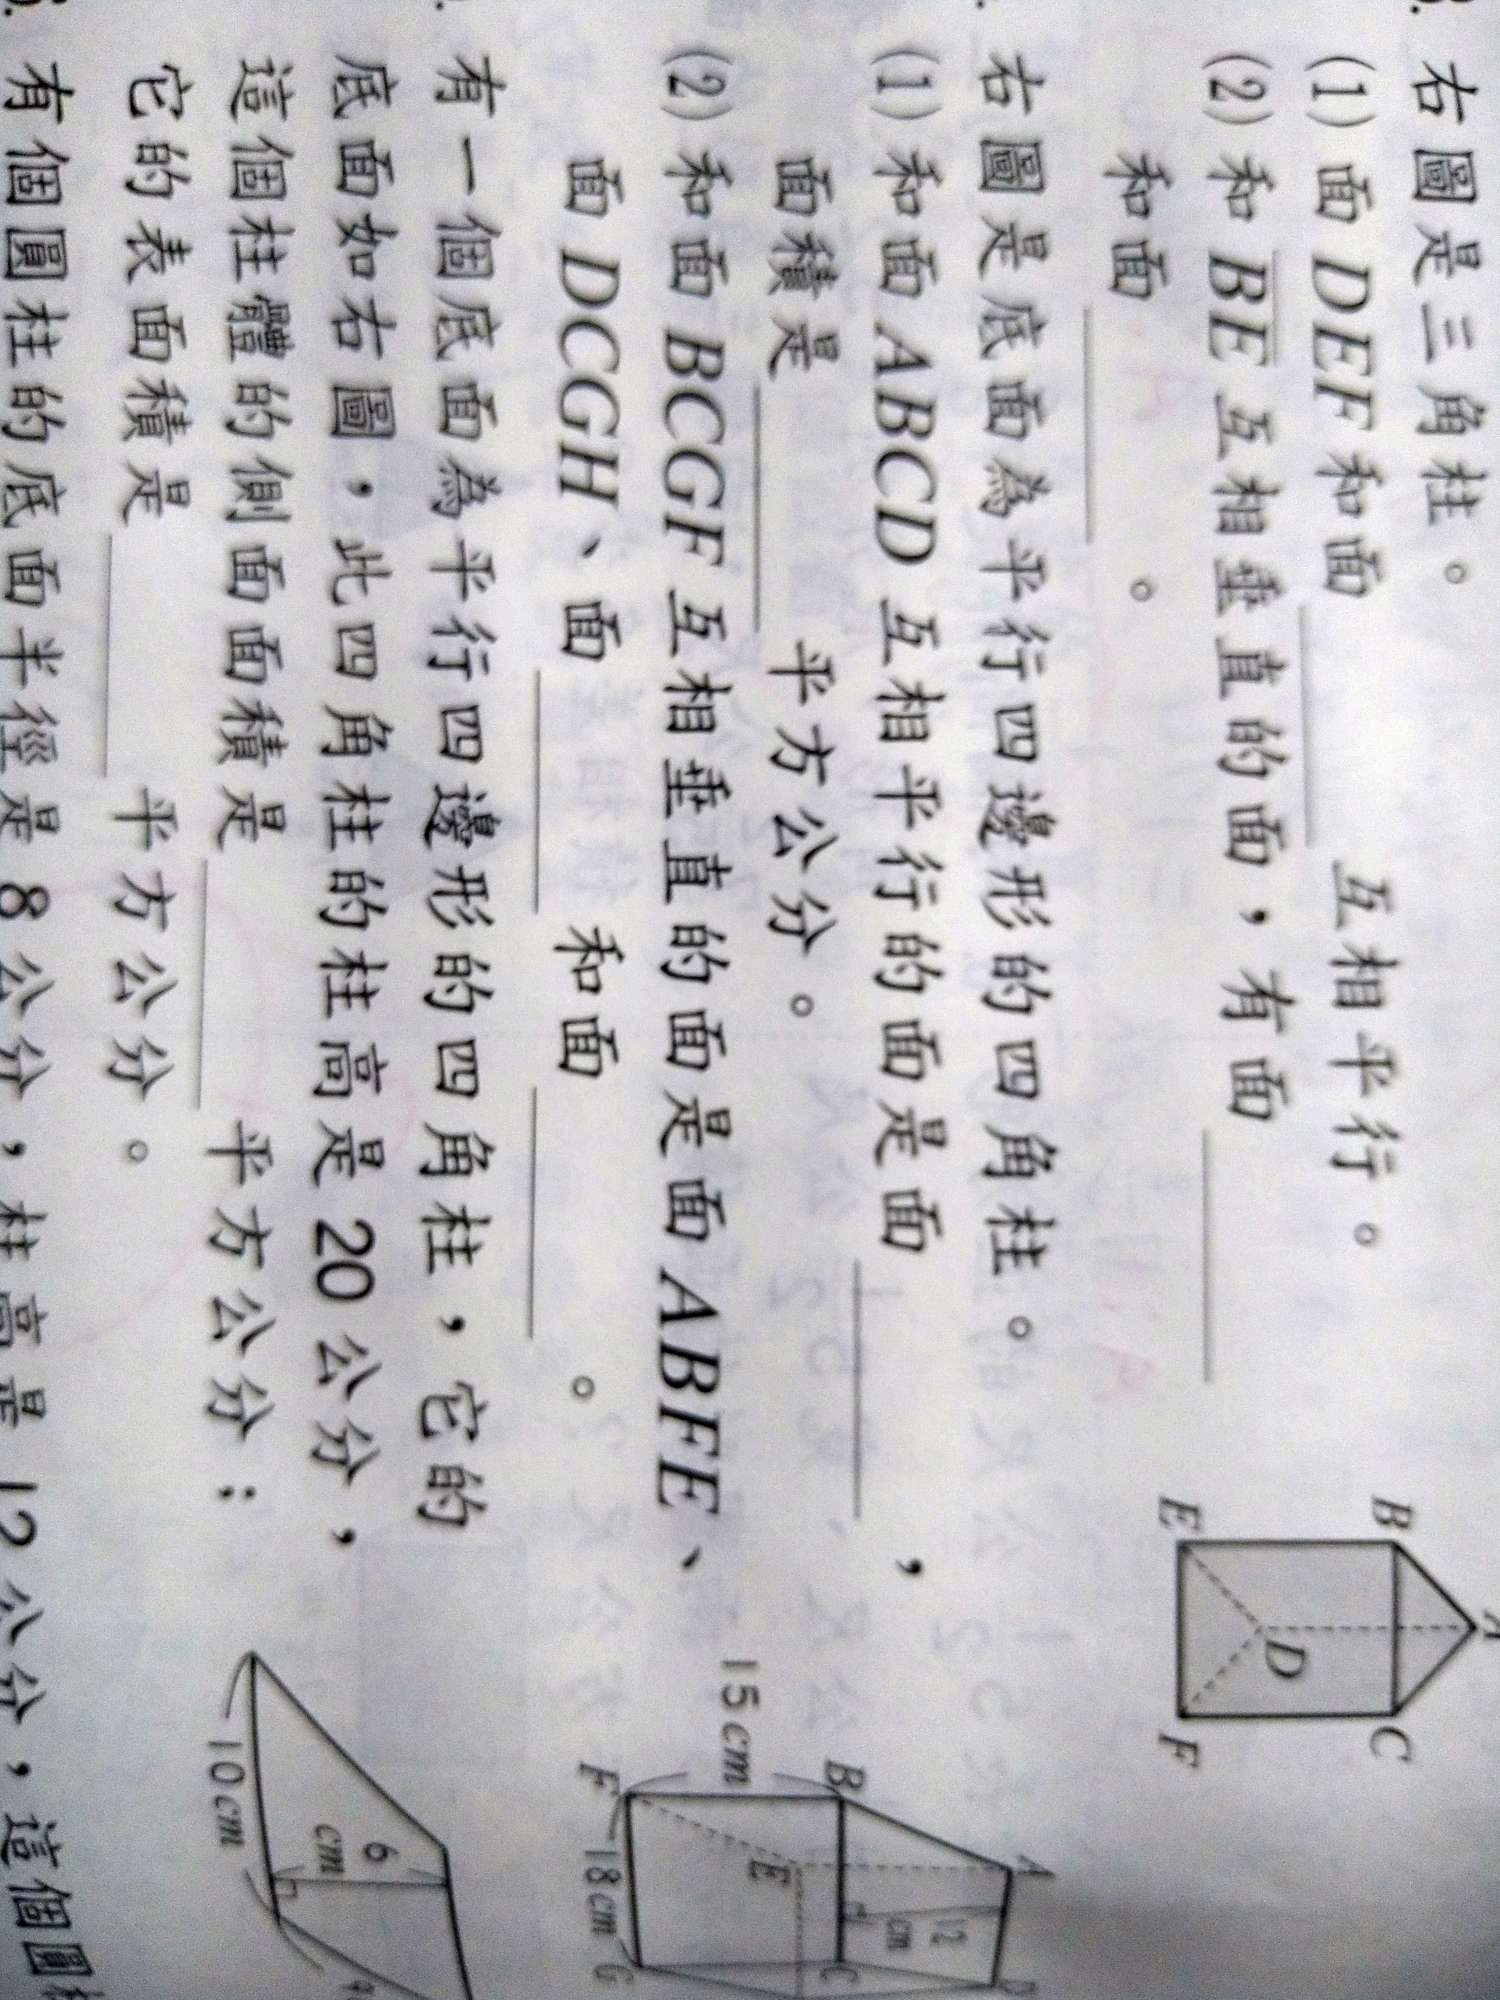 右圖是三角柱。
(1) 面 DEF 和面 互相平行。
(2) 和 BE 互相垂直的面，有面
和面 。
右圖是底面為平行四邊形的四角柱。
(1) 和面 ABCD 互相平行的面是面 ，
面積是 平方公分。
(2) 和面 BCGF 互相垂直的面是面 ABFE、
面 DCGH、面 和面 。
有一個底面為平行四邊形的四角柱，它的
底面如右圖，此四角柱的柱高是 20 公分，
這個柱體的側面面積是 平方公分；
它的表面積是 平方公分。
有個圓柱的底面半徑是 8 公分，柱高是 12 公分，這個圓
A
B
C
D
E
F
A
B
C
D
12
cm
15 cm
E
F
18 cm
G
6
cm
10 cm